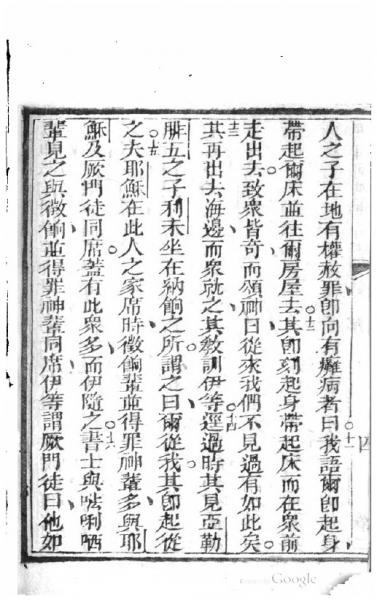 人之子在地有權赦罪卽向有癱病者曰我語爾卽起身
十一
帶起爾床並往爾房屋去其卽刻起身帶起床而在衆前
十二
走出去致衆皆奇而頌神曰從來我們不見過有如此矣
十三
其再出去海邊而衆就之其敎訓伊等逕過時其見亞勒
十四
腓五之子利未坐在納餉之所謂之曰爾從我其卽起從
十五
之夫耶穌在此人之家席時徵餉輩並得罪神輩多與耶
穌及厥門徒同席蓋有此衆多而伊隨之書士與㕹唎哂
十六
輩見之與徵餉並得罪神輩同席伊等謂厥門徒曰他如
四
Google